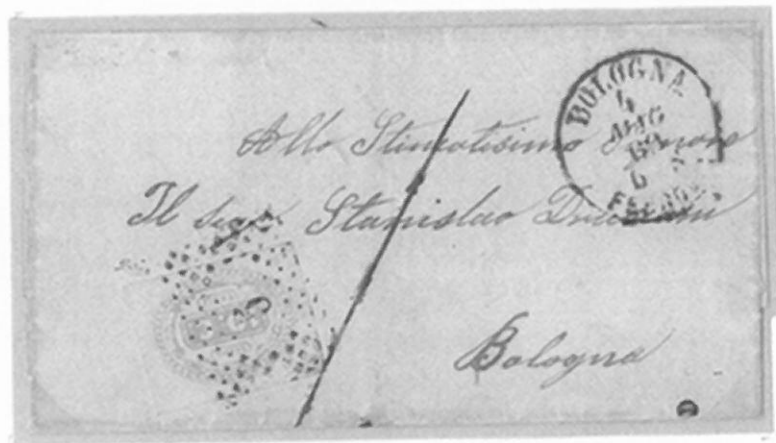 BOLOGNA
4
AUG
FERROVIA
Allo Stimatisimo Signore
Il Sigr Stanislao
Bologna